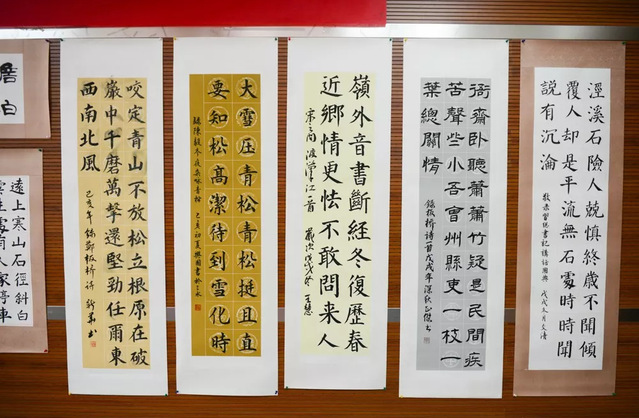 涇溪石險人兢慎終歲不聞傾
覆人却是平流無石處時時聞
說有沉淪
敬录習總書記講話用典
衙齋卧聽蕭蕭竹疑是民間疾
苦聲些小吾曹州縣吏一枝一
葉總關情
錄板橋詩一首戊戌年深秋
嶺外音書斷經冬復歷春
近鄉情更怯不敢問来人
宋之問渡漢江
歲次戊戌冬
大雪压青松青松挺且直
要知松高潔待到雪化時
錄陳毅冬夜杂咏青松
己亥初夏
咬定青山不放松立根原在破
巖中千磨萬擊還堅勁任爾東
西南北風
己亥年錄鄭板橋詩
遠上寒山石径斜白
雲生處有人家停車